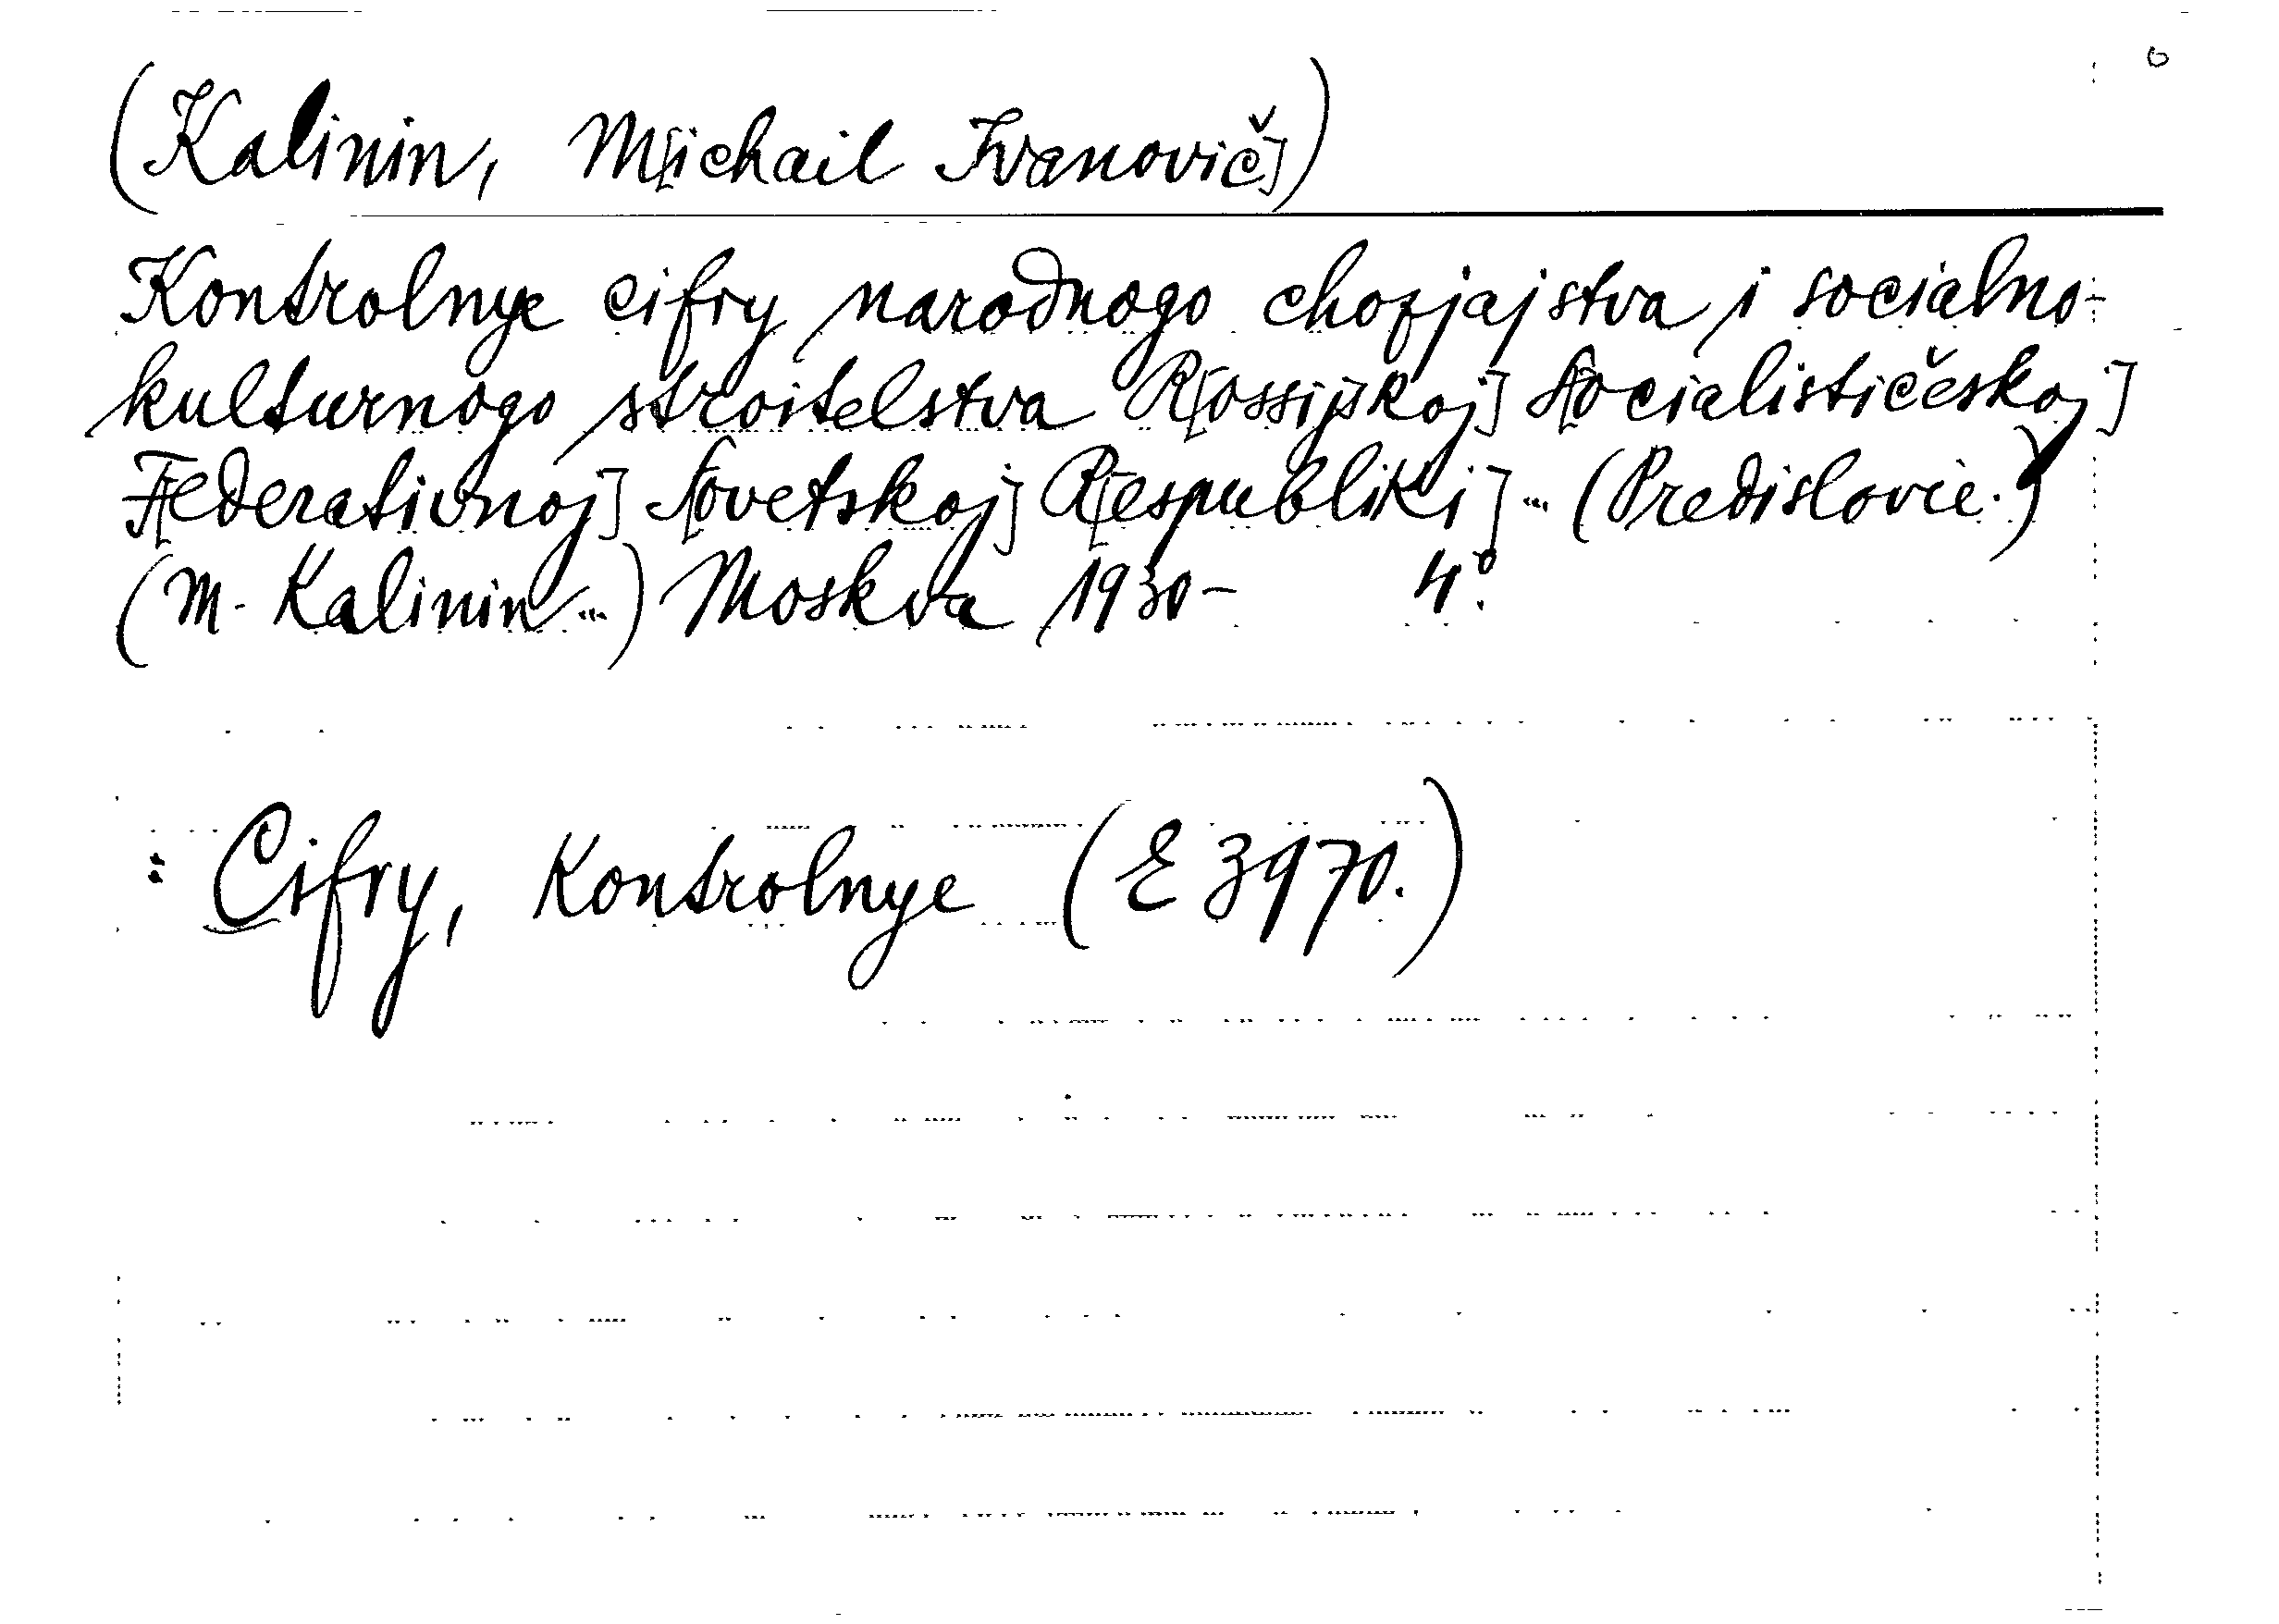 (Kalinin, M[ichail Ivanovič])
Kontrolnye cifry narodnogo chozjajstva i socialno-
kulturnogo stroitelstva R[ossijskoj] S[ocialističeskoj]
F[ederativnoj] S[ovetskoj] R[espubliki] ... (Predislovie.)
(M. Kalinin ...) Moskva 1930- 4°.
: Cifry, Kontrolnye (E 3970.)